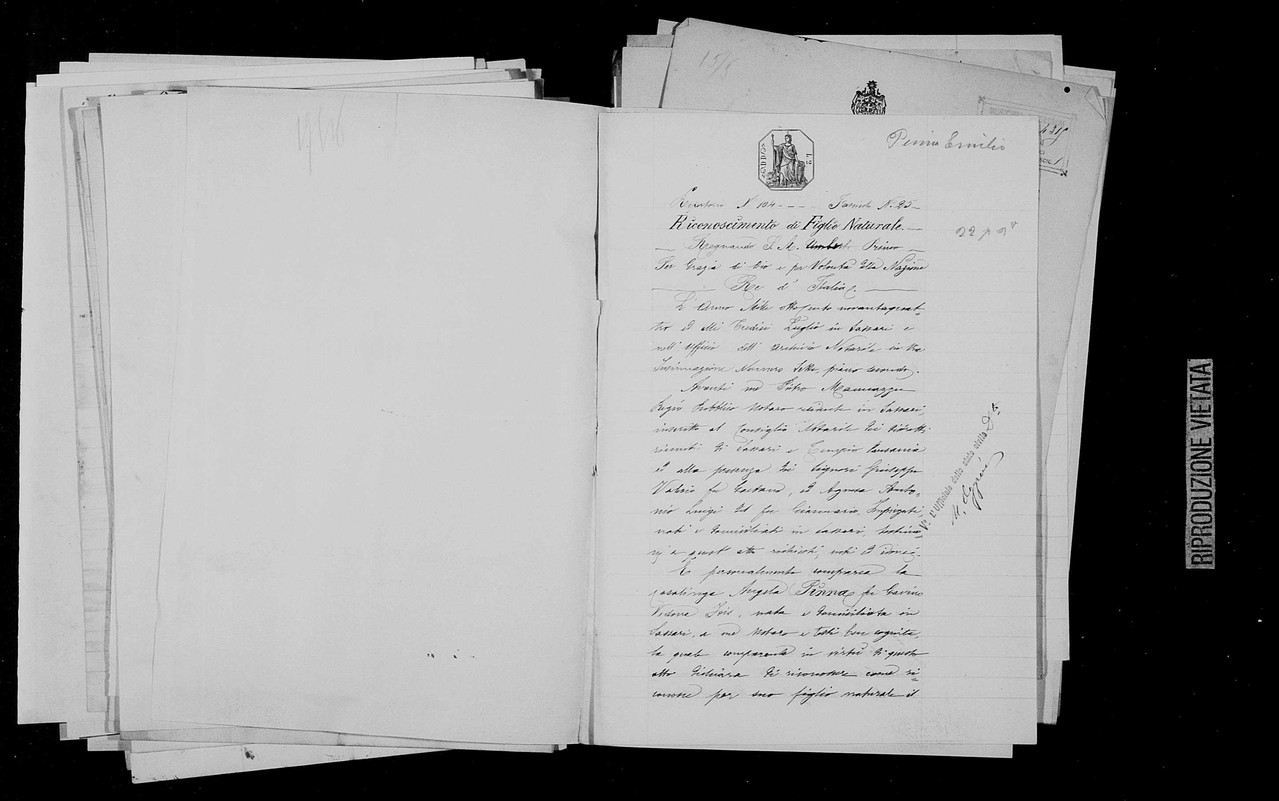 Pinna Emilio
N. 104 - - - - N. 25 -
Riconoscimento di Figlio Naturale. —
— Regnando S. M. Umberto Primo —
Per Grazia di Dio e per Volontà della Nazione
— Re d' Italia. —
L' Anno Mille ottocento novantaquat-
tro ed alli Tredici Luglio in Sassari e
nell' Ufficio dell' Archivio Notarile in Via
Insinuazione Numero Sette, piano secondo.
Avanti me Pietro
Regio Pubblico Notaro residente in Sassari,
inscritto al Consiglio Notarile dei distretti
riuniti di Sassari e Tempio Pausania
ed alla presenza dei Signori Giuseppe
Valerio fu Gaetano, ed Agnesa Anto-
nio Luigi del fu Giommaria, Impiegati,
nati e domiciliati in Sassari, testimo-
nj a quest' atto richiesti, noti ed idonei.
È personalmente comparsa la
casalinga Angela Pinna fu Gavino
Vedova nata e domiciliata in
Sassari, a me Notaro e testi ben cognita,
la quale comparente in virtù di questo
atto dichiara di riconoscere come ri-
conosce per suo figlio naturale il
V.° L'Uffiziale dello stato civile
RIPRODUZIONE VIETATA